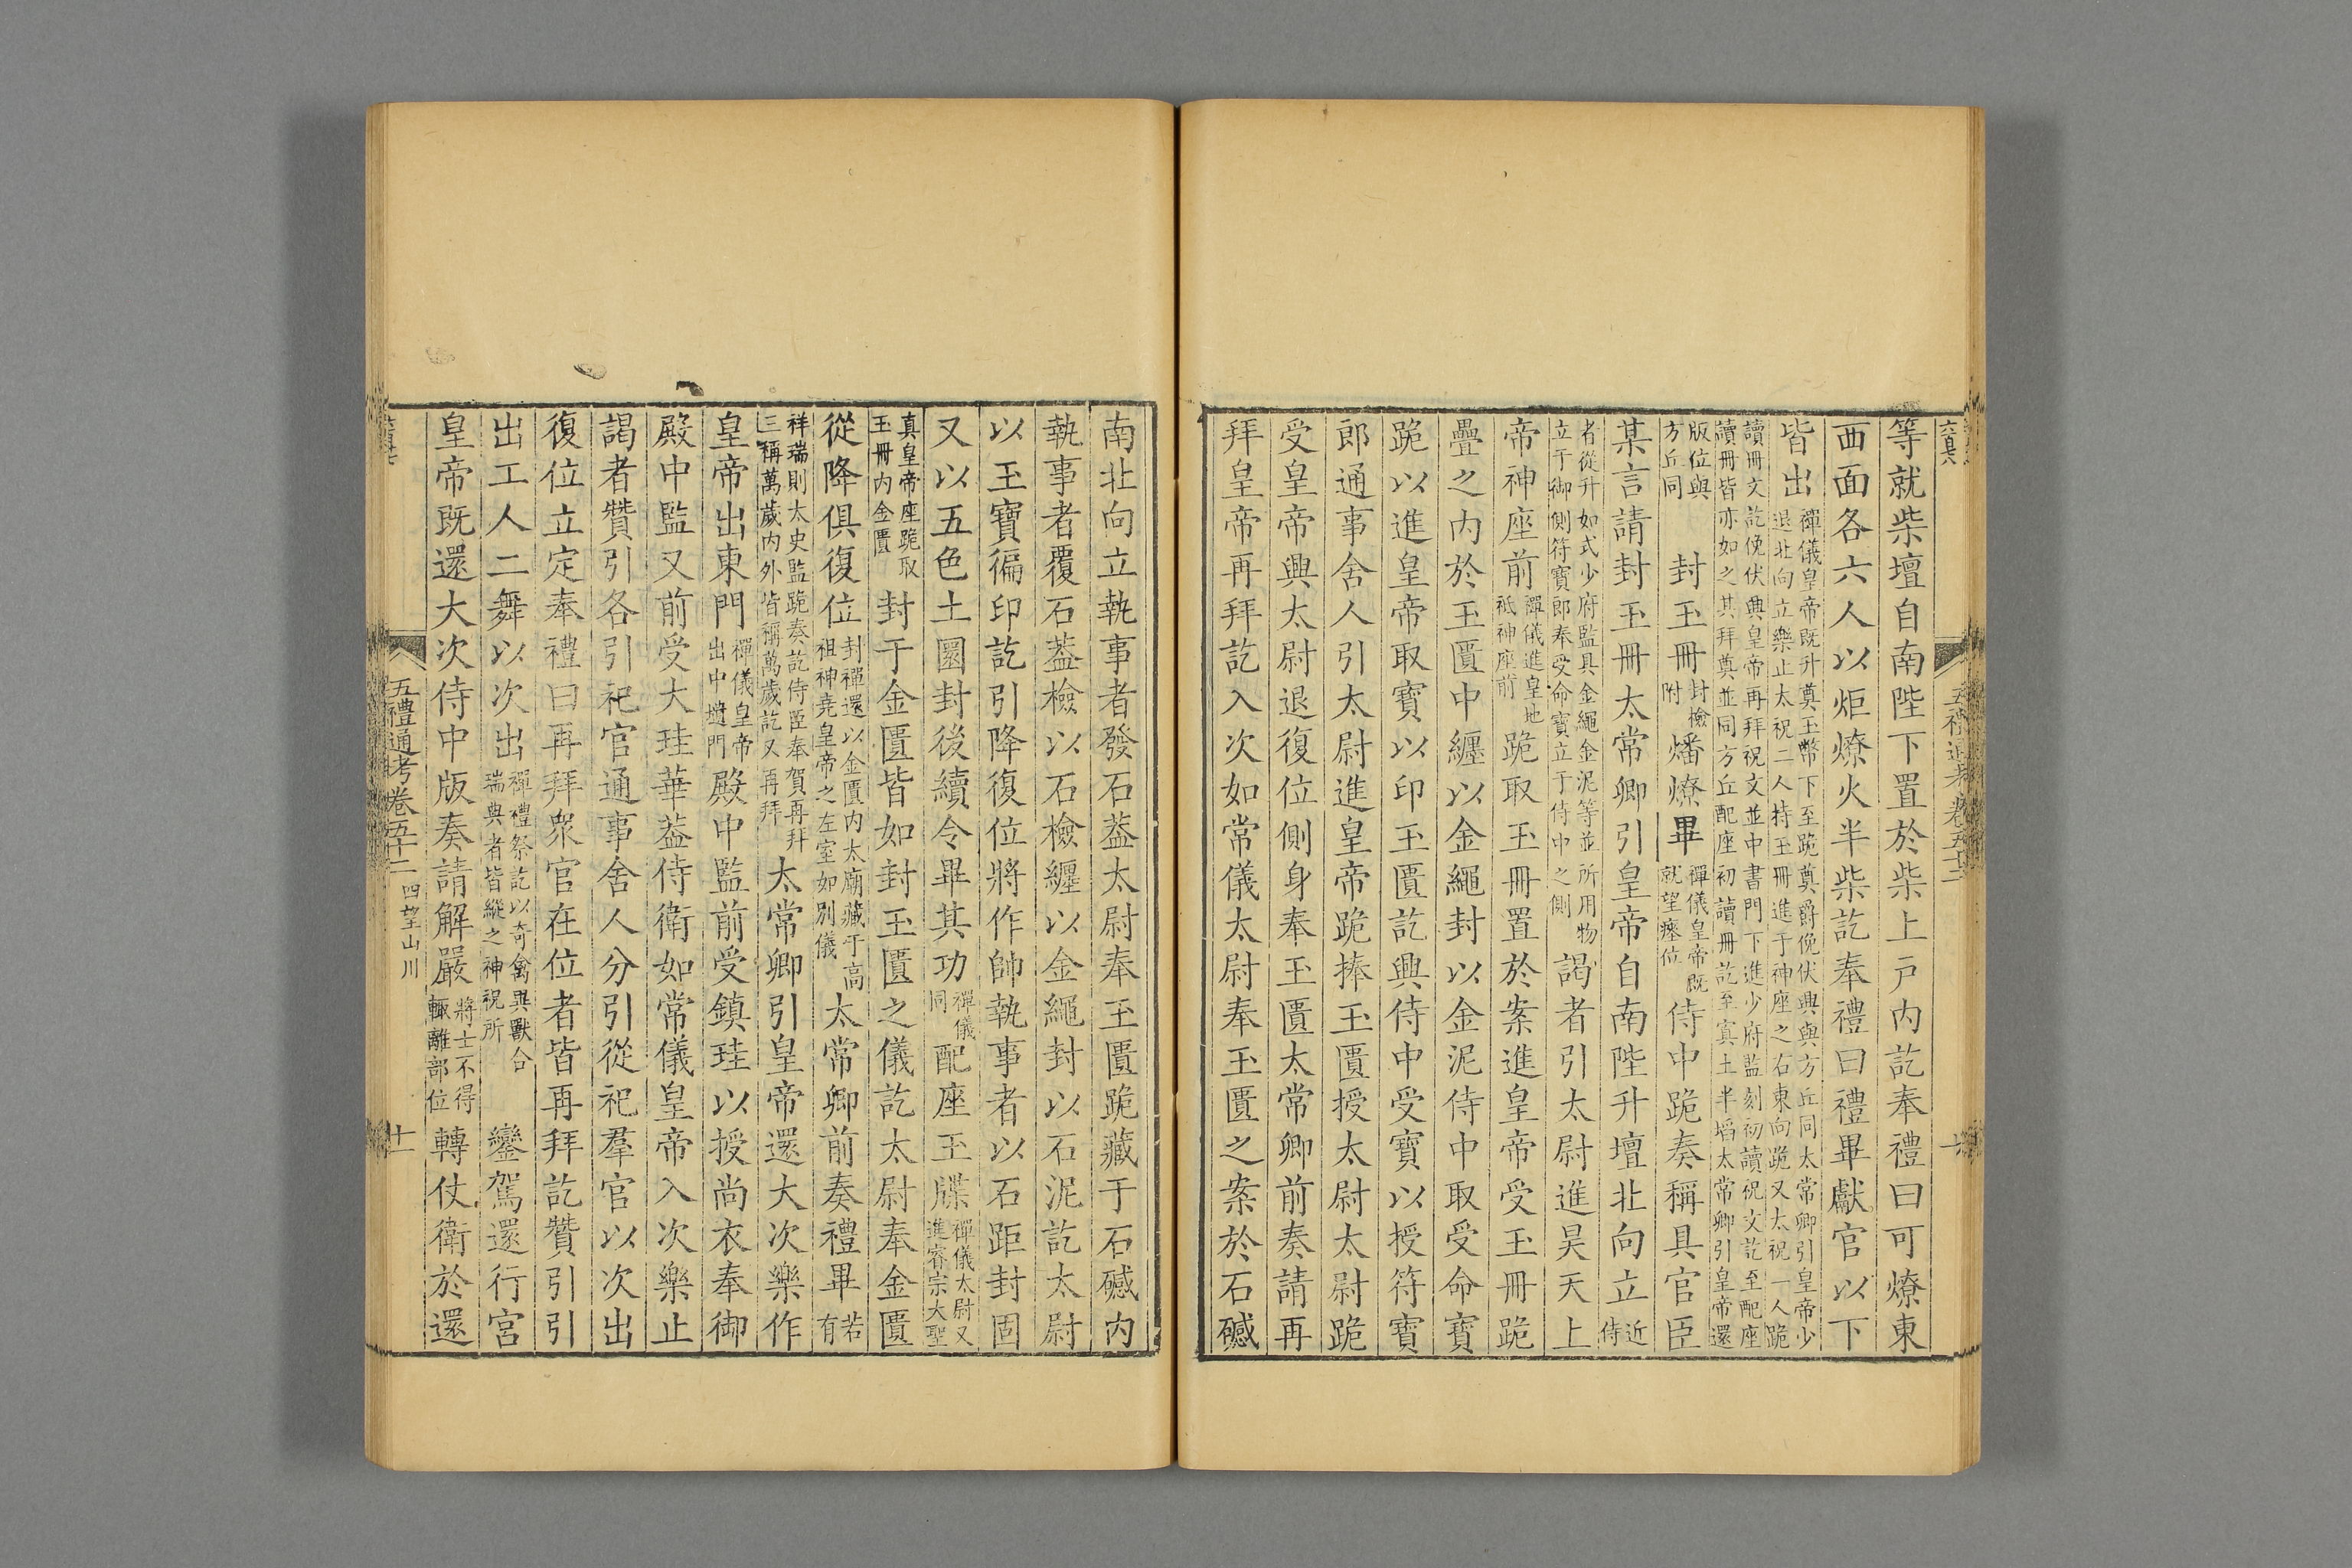 等就柴壇自南陛下置於柴上戸內訖奉禮曰可燎東
西面各六人以炬燎火半柴訖奉禮曰禮畢獻官以下
皆出禪儀皇帝既升奠玉幣下至跪奠爵俛伏興與方丘同太常卿引皇帝少
退北向立樂止太祝二人持玉冊進于神座之右東向跪又太祝一人跪
讀冊文訖俛伏興皇帝再拜祝文並中書門下進少府監刻初讀祝文訖至配座
讀冊皆亦如之其拜奠並同方丘配座初讀冊訖至寘土半壔太常卿引皇帝還
版位與
方丘同
封玉冊封檢
附
燔燎畢禪儀皇帝既
就望瘞位
侍中跪奏稱具官臣
某言請封玉冊太常卿引皇帝自南陛升壇北向立近
侍
者從升如式少府監具金繩金泥等並所用物
立于御側符寶郎奉受命寶立于侍中之側
謁者引太尉進昊天上
帝神座前禪儀進皇地
祇神座前
跪取玉冊置於案進皇帝受玉冊跪
疊之內於玉匱中纏以金繩封以金泥侍中取受命寶
跪以進皇帝取寶以印玉匱訖興侍中受寶以授符寶
郎通事舍人引太尉進皇帝跪捧玉匱授太尉太尉跪
受皇帝興太尉退復位側身奉玉匱太常卿前奏請再
拜皇帝再拜訖入次如常儀太尉奉玉匱之案於石䃭
南北向立執事者發石葢太尉奉玉匱跪藏于石䃭內
執事者覆石葢檢以石檢纏以金繩封以石泥訖太尉
以玉寶徧印訖引降復位將作帥執事者以石距封固
又以五色土圜封後續令畢其功禪儀
同
配座玉牒禪儀太尉又
進睿宗大聖
真皇帝座跪取
玉冊內金匱
封于金匱皆如封玉匱之儀訖太尉奉金匱
從降俱復位封禪還以金匱內太廟藏于高
祖神堯皇帝之左室如別儀
太常卿前奏禮畢若
有
祥瑞則太史監跪奏訖侍臣奉賀再拜
三稱萬歲內外皆稱萬歲訖又再拜
太常卿引皇帝還大次樂作
皇帝出東門禪儀皇帝
出中壝門
殿中監前受鎮珪以授尚衣奉御
殿中監又前受大珪華葢侍衛如常儀皇帝入次樂止
謁者贊引各引祀官通事舍人分引從祀羣官以次出
復位立定奉禮曰再拜衆官在位者皆再拜訖贊引引
出工人二舞以次出禪禮祭訖以奇禽異獸合
瑞典者皆縱之神祝所
鑾駕還行宮
皇帝既還大次侍中版奏請解嚴將士不得
輙離部位
轉仗衛於還
五禮通考卷五十二 四望山川
十一